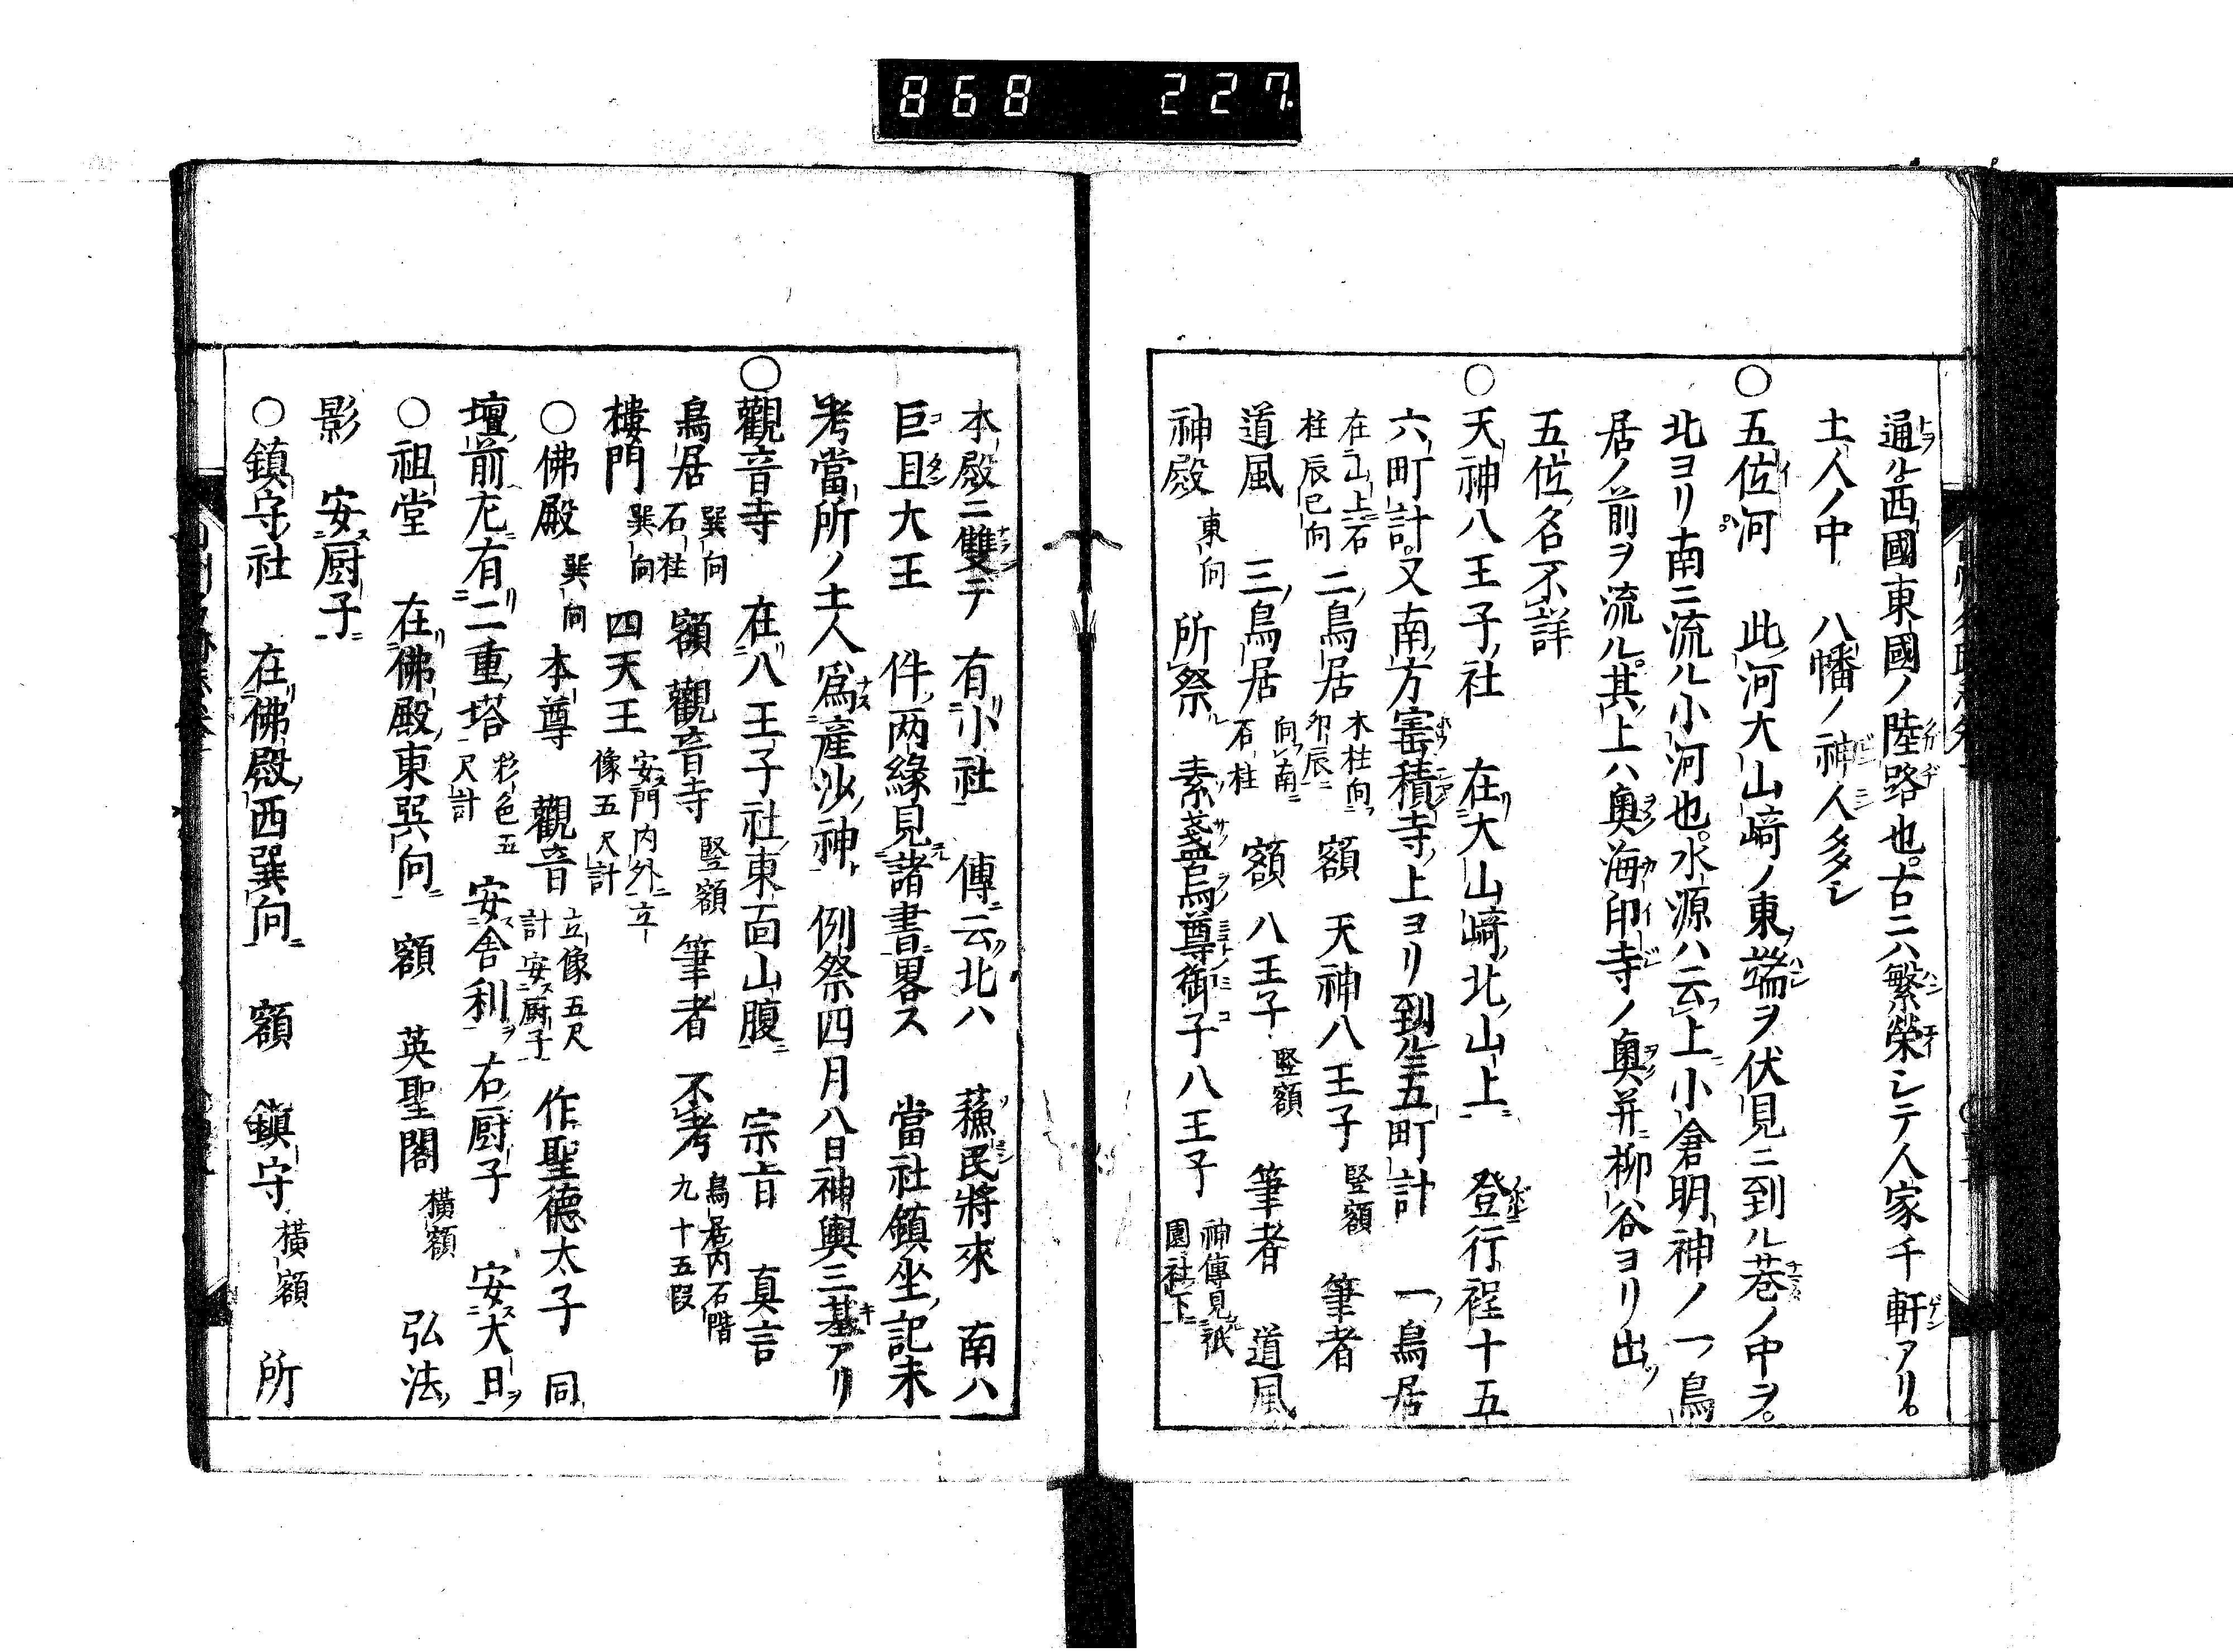 868 227
通ル西國東國ノ陸路也。古ニハ繁榮シテ人家千軒アリ。
土人ノ中 八幡ノ神人多シ
○五位河 此河大山﨑ノ東ノ端ヲ伏見ニ到ル巷ノ中ヲ。
北ヨリ南ニ流ル小河也。水源ハ云上小倉明神ノ一鳥
居ノ前ヲ流ル。其上ハ奧海印寺ノ奧并柳谷ヨリ出
五位名不詳
○天神八王子社 在大山﨑北山上 登行程十五
六町計。又南方寳積寺上ヨリ到ル五町計 一鳥居
在山上石柱辰巳向 二鳥居 木柱向卯辰 額 天神八王子 竪額 筆者
道風 三鳥居 向南石柱 額 八王子 竪額 筆者 道風
神殿 東向 所祭 素盞烏尊御子八王子 神傳見祇園社下
本殿ニ雙テ 有小社 傳云北ハ 蘓民將來 南ハ
巨旦大王 件两緣見諸書畧ス 當社鎮坐記未
考當所ノ土人爲產沙神 例祭四月八日神輿三基アリ
○觀音寺 在八王子社東面山腹 宗㫖 真言
鳥居 巽向石柱 額 觀音寺 竪額 筆者 不考 鳥居内石階九十五段
樓門 巽向 四天王 安門内外立像五尺計
○佛殿 巽向 本尊 觀音 立像五尺計安厨子 作聖德太子 同
壇前左有二重塔 彩色五尺計 安舎利 右厨子 安大日
○祖堂 在佛殿東巽向 額 英聖閣 横額 弘法
影 安厨子
○鎮守社 在佛殿西巽向 額 鎮守 横額 所